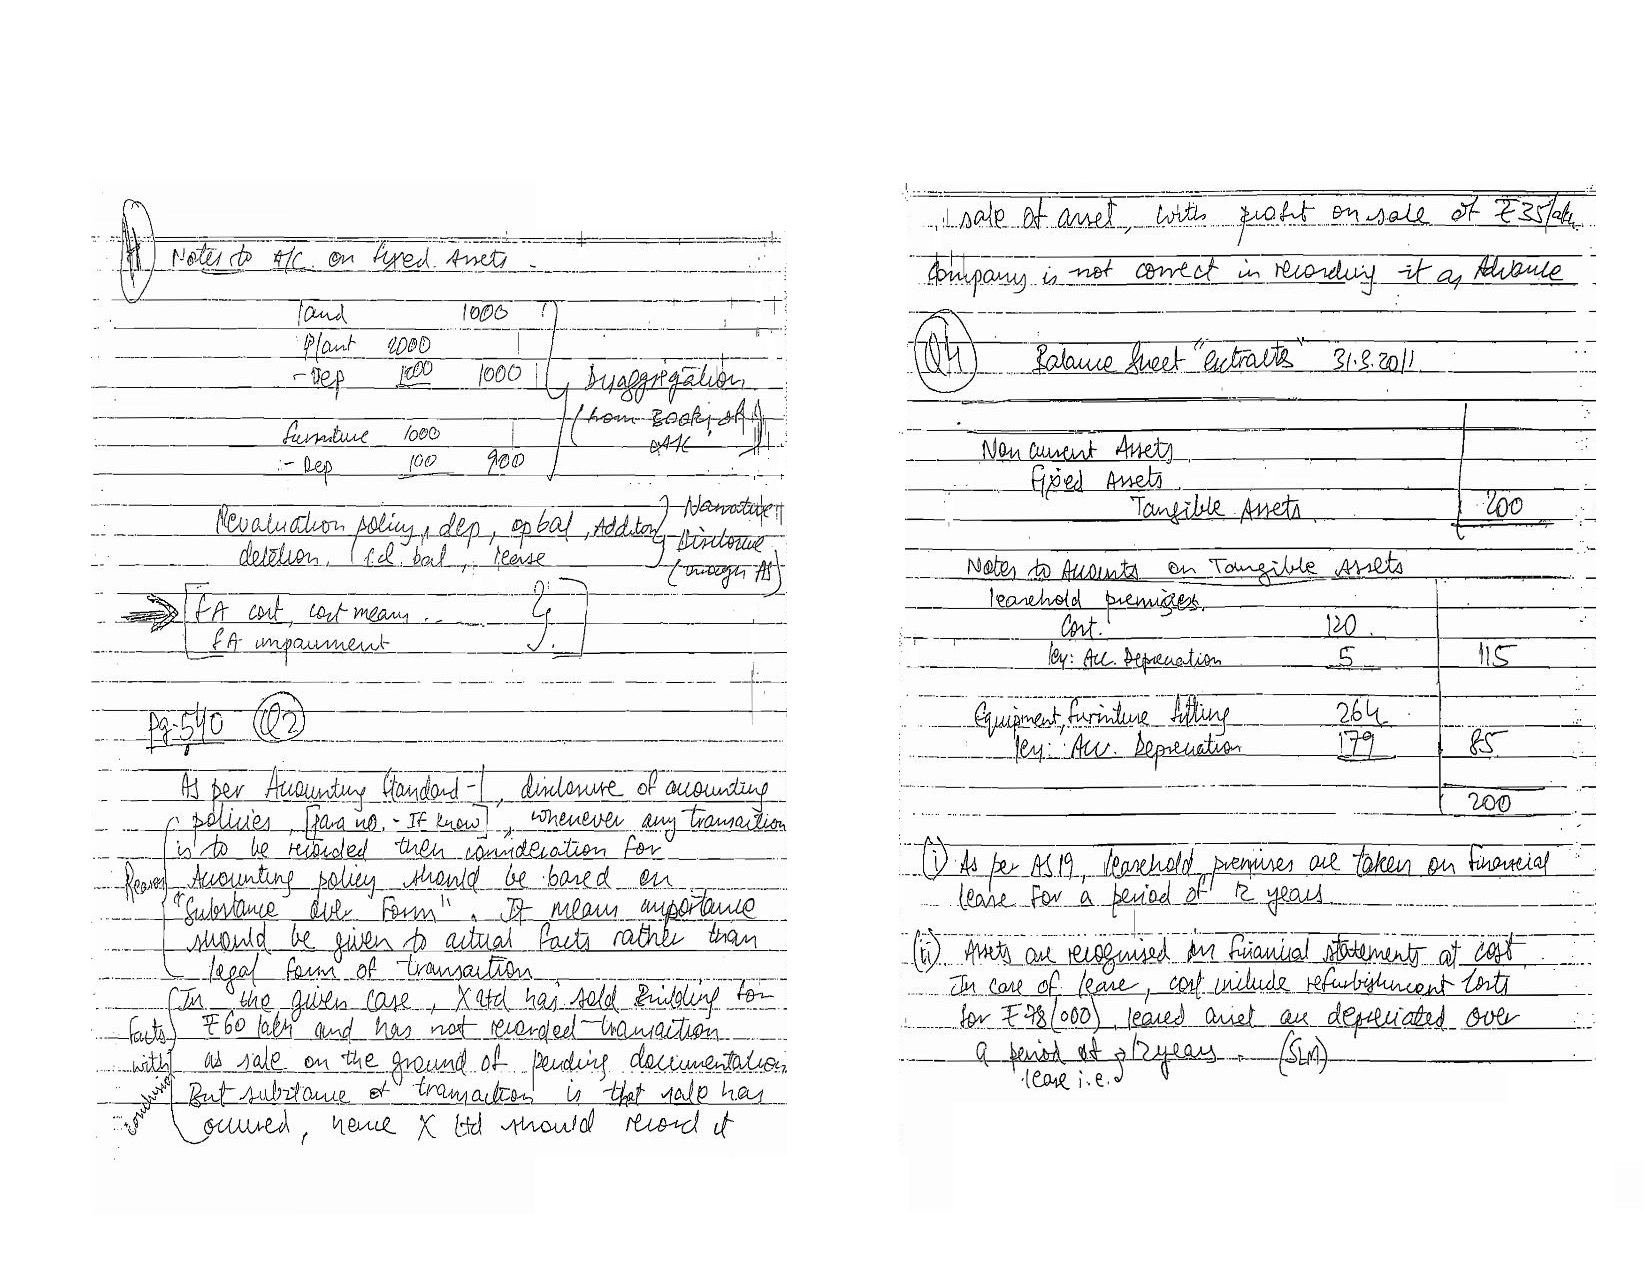 Notes to A/C on Fixed Assets.
Land 1000
Plant 2000
- Dep 1000 1000
Disaggregation
(from Books of
A/C
Furniture 1000
- Dep 100 900
Narrative
Revaluation policy, dep, op bal, Addition
deletion, cl. bal, lease
Disclosure
(through AS)
FA cost, cost means ..
FA impairment
Pg-540 Q2
As per Accounting Standard-1, disclosure of accounting
policies, [para no. - If know], whenever any transaction
is to be recorded then consideration for
Reason Accounting policy should be based on
"Substance over Form". It means importance
should be given to actual facts rather than
legal form of transaction
In the given case, X Ltd has sold Building for
Facts ₹60 lakh and has not recorded transaction
with as sale on the ground of pending documentation
conclusion But substance of transaction is that sale has
occured, hence X Ltd should record it
sale of asset, with profit on sale of ₹35/lakh.
Company is not correct in recording it as Advance
Q4 Balance Sheet "extracts" 31.3.2011
Non current Assets
Fixed Assets
Tangible Assets 200
Notes to Accounts on Tangible Assets
leasehold premises.
Cost. 120
ley: Acc. Depreciation 5 115
Equipment, Furniture fitting 264
ley: Acc. Depreciation 179 85
200
(i) As per AS19, leasehold premises are taken on financial
lease for a period of 12 years
(ii) Assets are recognised in financial statements at cost
In case of lease, cost include refurbishment costs
for ₹78(000), leased asset are depreciated over
a period of 12 years. (SLM)
lease i.e.